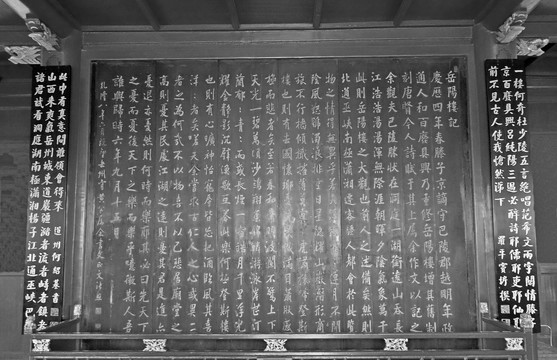 一樓何奇杜少陵五言絕唱范希文兩字關情滕子
京百廢具興呂純陽三過必醉詩耶儒耶吏耶仙耶
前不見古人使我愴然淚下
岳陽樓記
慶歷四年春滕子京謫守巴陵郡越明年政
通人和百廢具興乃重修岳陽樓增其舊制
刻唐賢今人詩賦于其上屬余作文以記之
余觀夫巴陵勝狀在洞庭一湖銜遠山吞長
江浩浩湯湯橫無際涯朝暉夕陰氣象萬千
此則岳陽樓之大觀也前人之述備矣然則
北通巫峽南極瀟湘遷客騷人都會於此覽
物之情得無異乎若夫霪雨霏霏連月不開
陰風怒號濁浪排空日星隱曜山岳潛形商
旅不行檣傾楫摧薄暮冥冥虎嘯猿啼登斯
樓也則有去國懷鄉憂讒畏譏滿目蕭然感
極而悲者矣至若春和景明波瀾不驚上下
天光一碧萬頃沙鷗翔集錦鱗游泳岸芷汀
蘭郁郁青青而或長煙一空皓月千里浮光
耀金靜影沉璧漁歌互答此樂何極登斯樓
也則有心曠神怡寵辱皆忘把酒臨風其喜
洋洋者矣嗟夫予嘗求古仁人之心或異二
者之為何哉不以物喜不以己悲居廟堂之
高則憂其民處江湖之遠則憂其君是進亦
憂退亦憂然則何時而樂耶其必曰先天下
之憂而憂後天下之樂而樂歟噫微斯人吾
誰與歸時六年九月十五日
諸君試看洞庭湖南極瀟湘揚子江北通巫峽巴陵
山西來爽氣岳州城東道巖疆瀦者流者峙者鎮者
此中有真意問誰領會得來 道州何紹基書